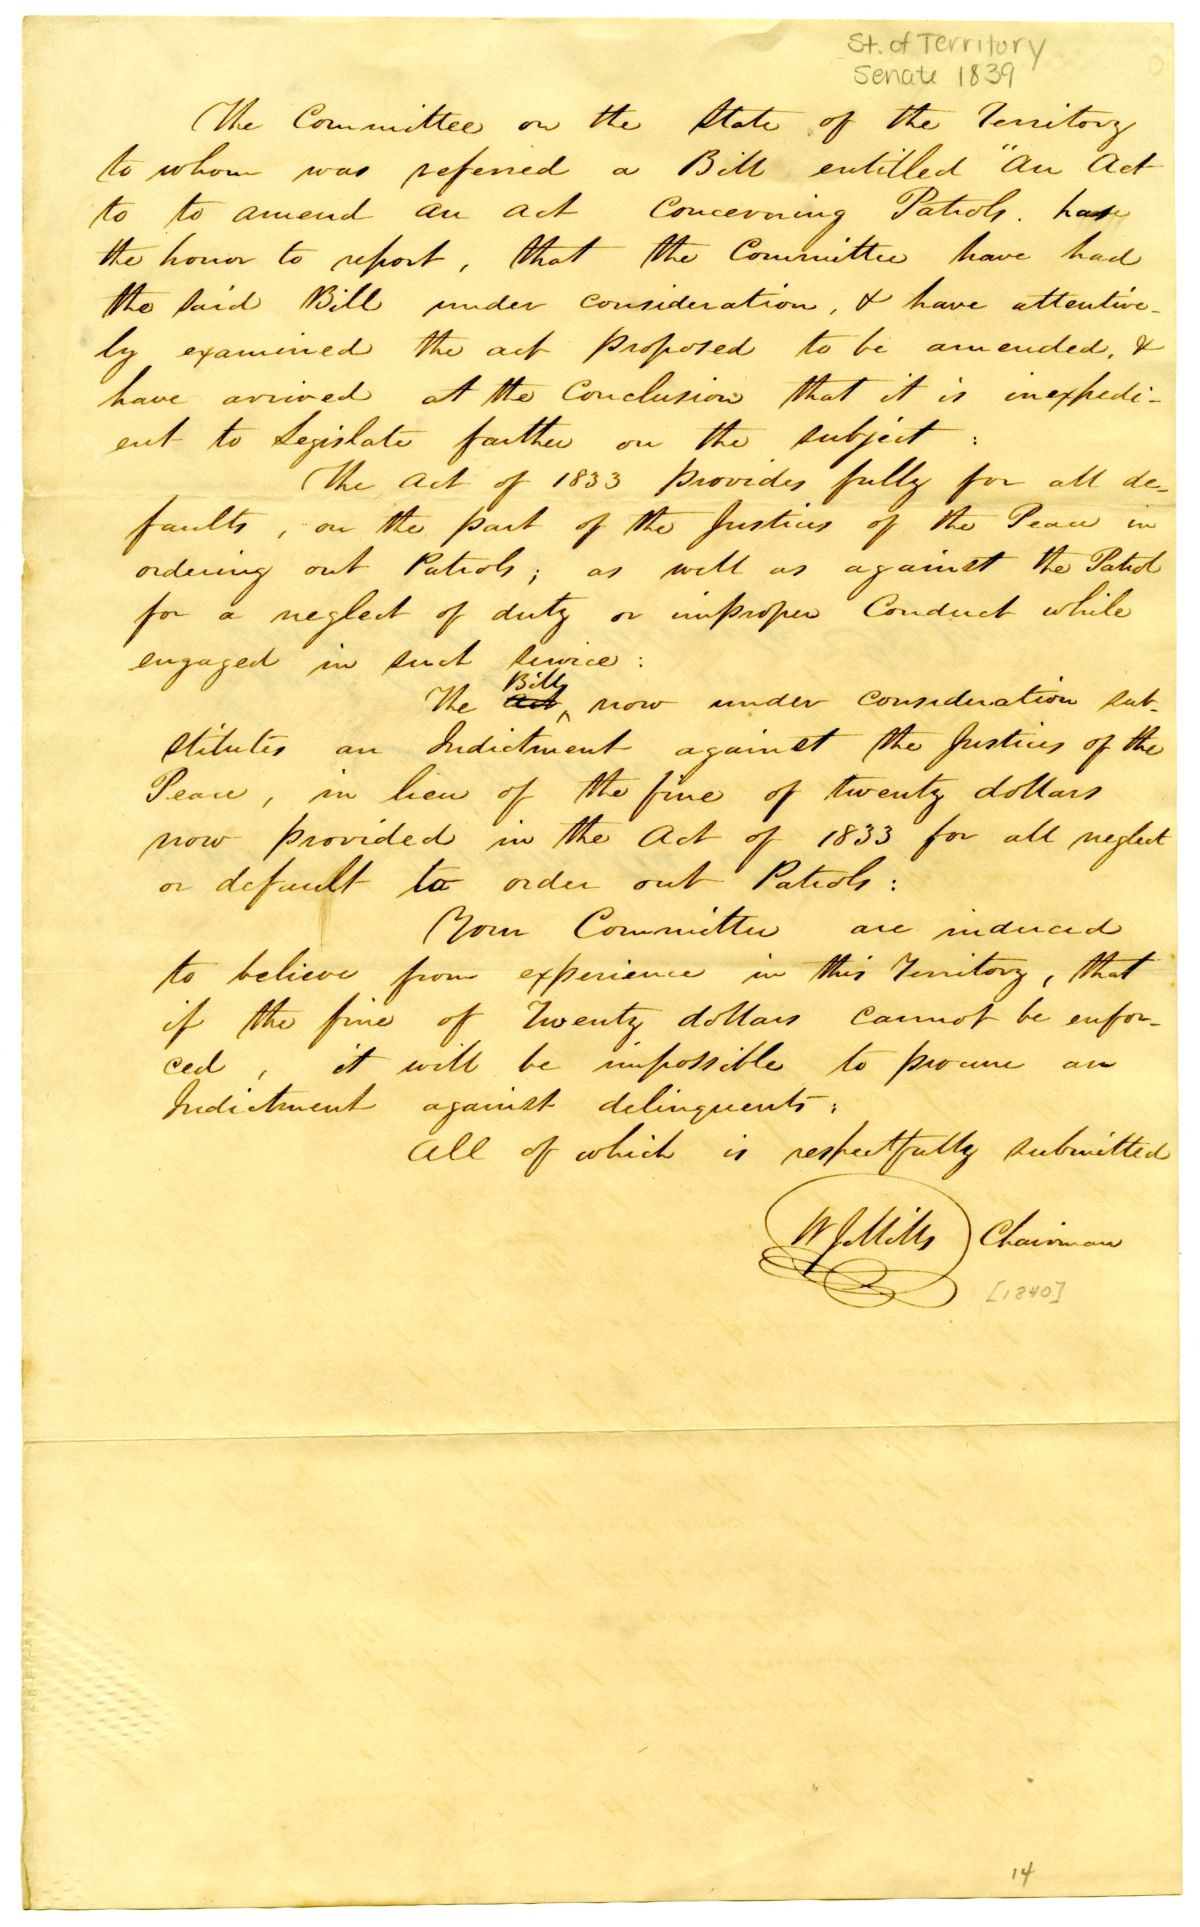 St. of Territory
Senate 1839
The Committee on the State of the Territory
to whom was referred a Bill entitled "An Act
to to amend an act Concerning Patrols. have
the honor to report, that the Committee have had
the said Bill under consideration, & have attentive-
ly examined the act proposed to be amended, &
have arrived at the Conclusion that it is inexpedi-
ent to Legislate farther on the subject:
The Act of 1833 provides fully for all de-
faults, on the part of the Justices of the Peace in
ordering out Patrols; as well as against the Patrol
for a neglect of duty or improper Conduct while
engaged in such service:
Bill
The Act, now under consideration sub-
stitutes an Indictment against the Justices of the
Peace, in lieu of the fine of twenty dollars
now provided in the Act of 1833 for all neglect
or default to order out Patrols:
Your Committee are induced
to believe from experience in this Territory, that
if the fine of Twenty dollars cannot be enfor-
ced, it will be impossible to procure an
Indictment against delinquents:
All of which is respectfully submitted
W J Mills Chairman
[1840]
14